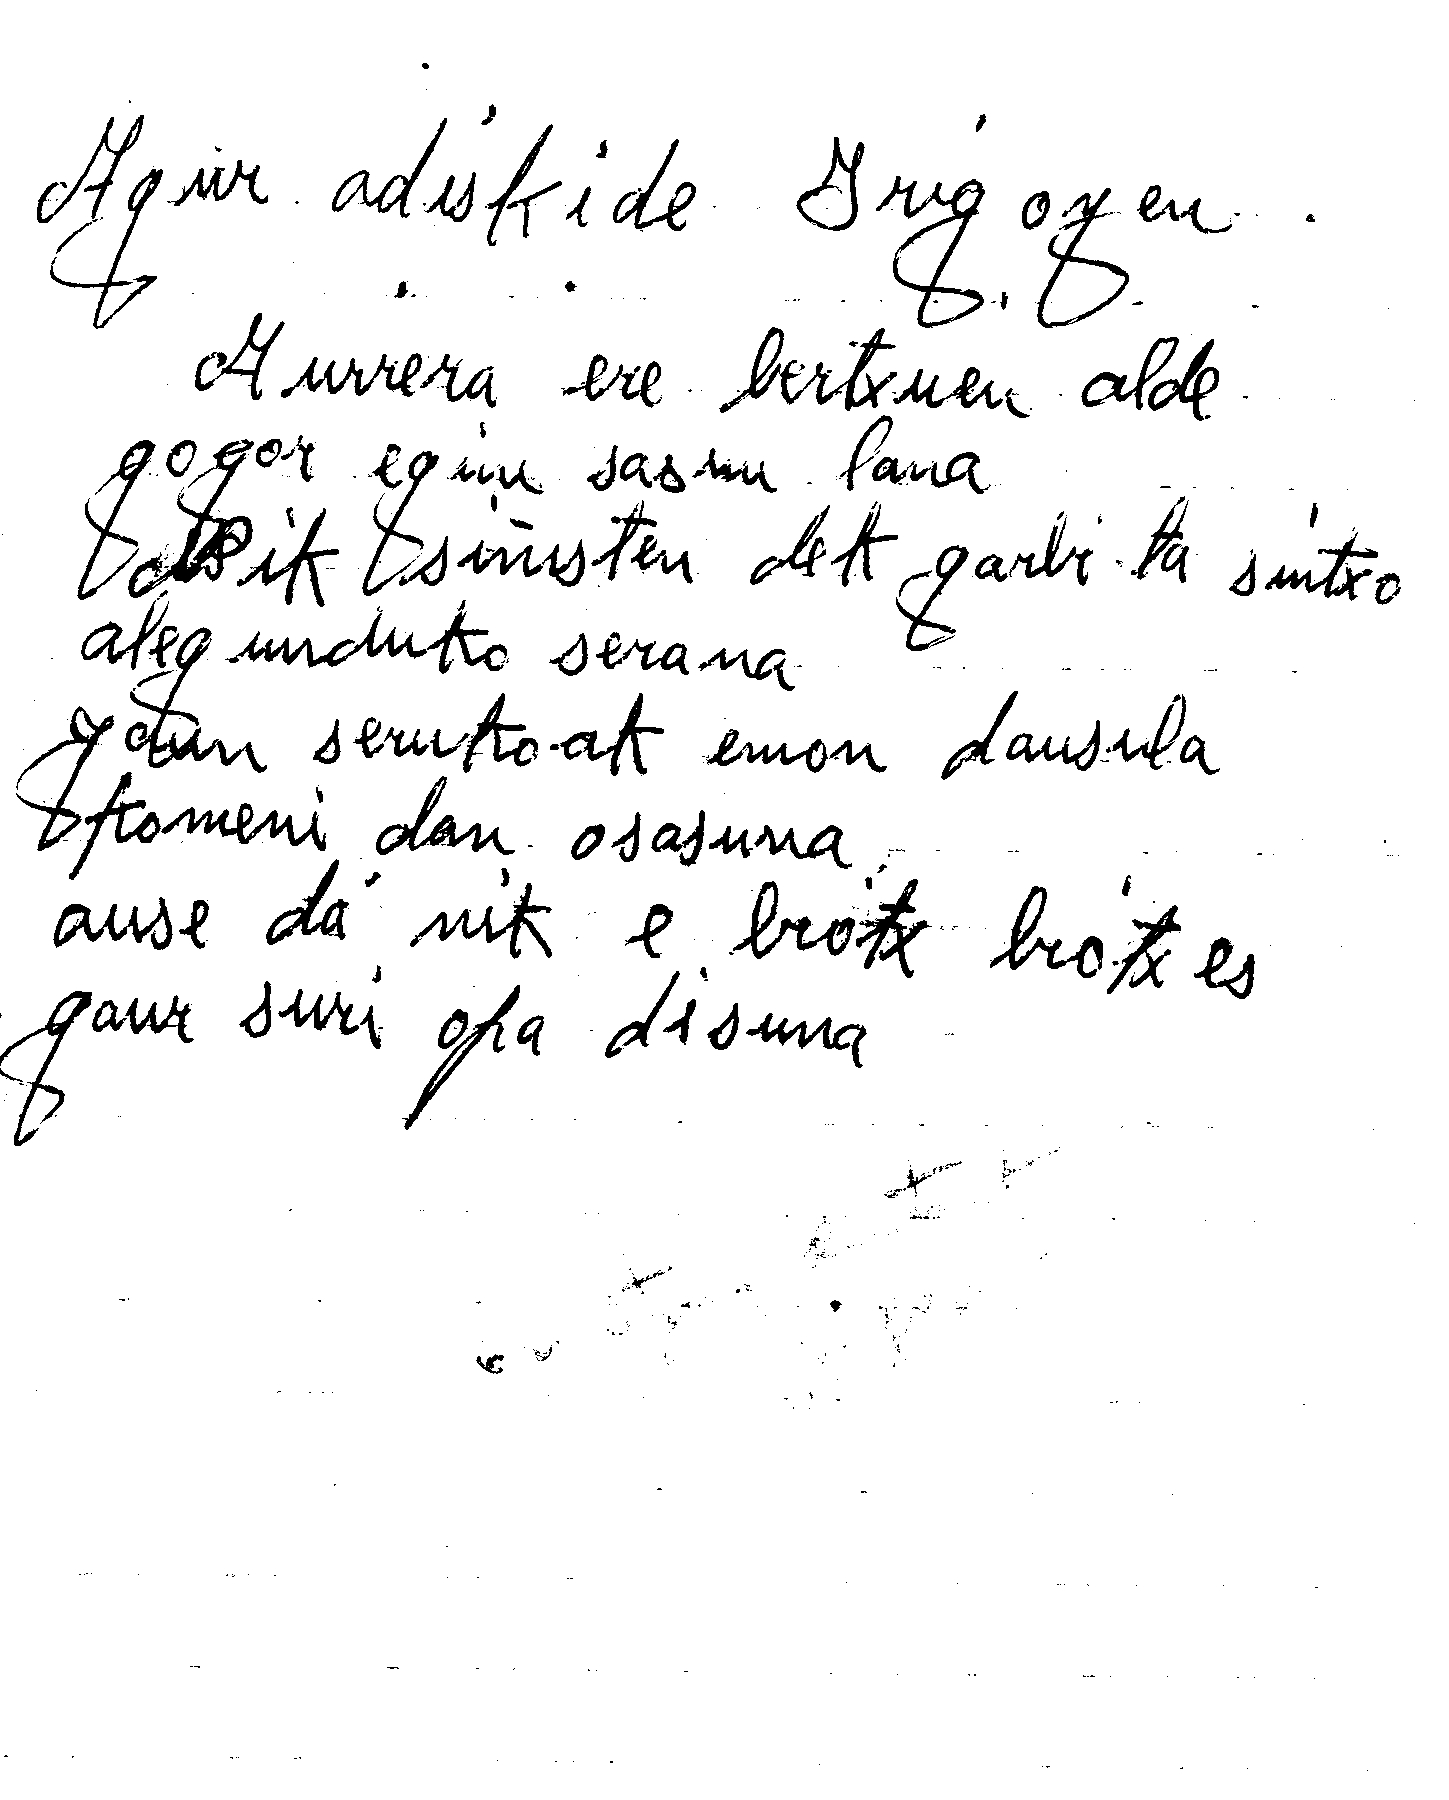 Agur adiskide Irigoyen.
Aurrera ere bertxuen alde
gogor eginu sasun lana
nik siñisten dek garbi ta sintxo
alegunduko serana
Jaun serukoak emon dausula
komeni dan osasuna,
ause da nik e brotx brotxes
gaur suri opa disuna